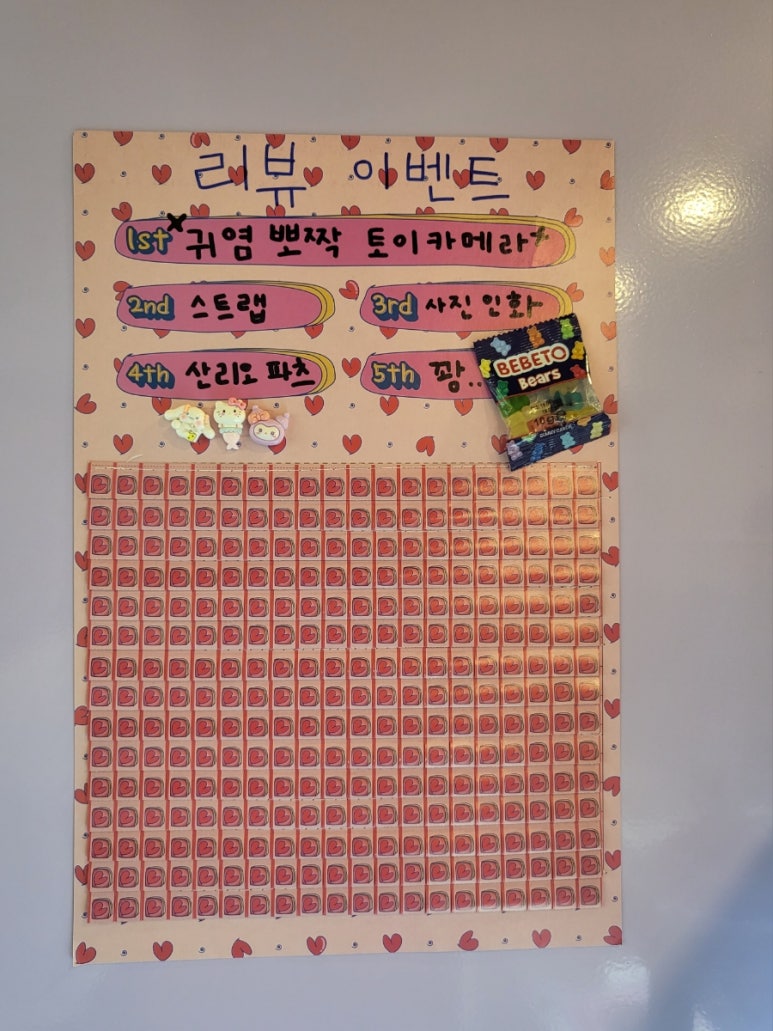 리뷰 이벤트
1st 귀염 뽀짝 토이카메라
2nd 스트랩
3rd 사진 인화
4th 산리오 파츠
5th 꽝..
BEBETO
Bears